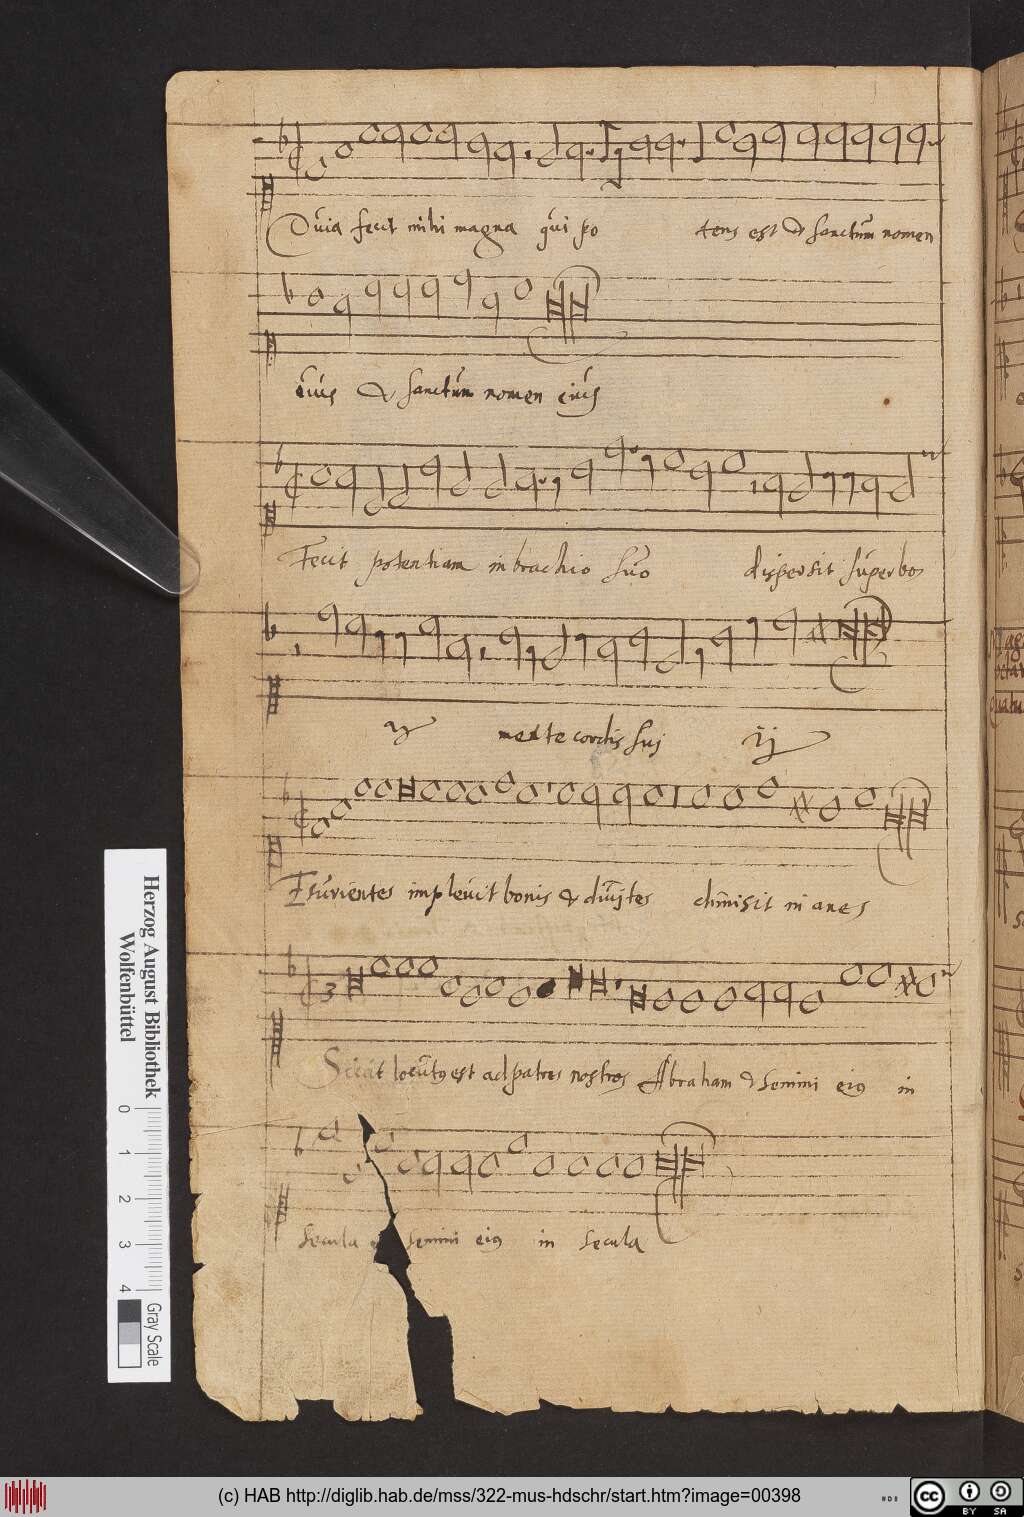 Quia fecit mihi magna qui po tens est & sanctum nomen
eius & sanctum nomen eius
Fecit potentiam in brachio suo dispersit superbos
ij mente cordis sui ij
Esurientes implevit bonis & divites dimisit inanes
3
Sicut locutus est ad patres nostros Abraham & semini eius in
secula semini eius in secula
Herzog August Bibliothek
Wolfenbüttel
0 1 2 3 4
Gray Scale
(c) HAB http://diglib.hab.de/mss/322-mus-hdschr/start.htm?image=00398
cc BY SA